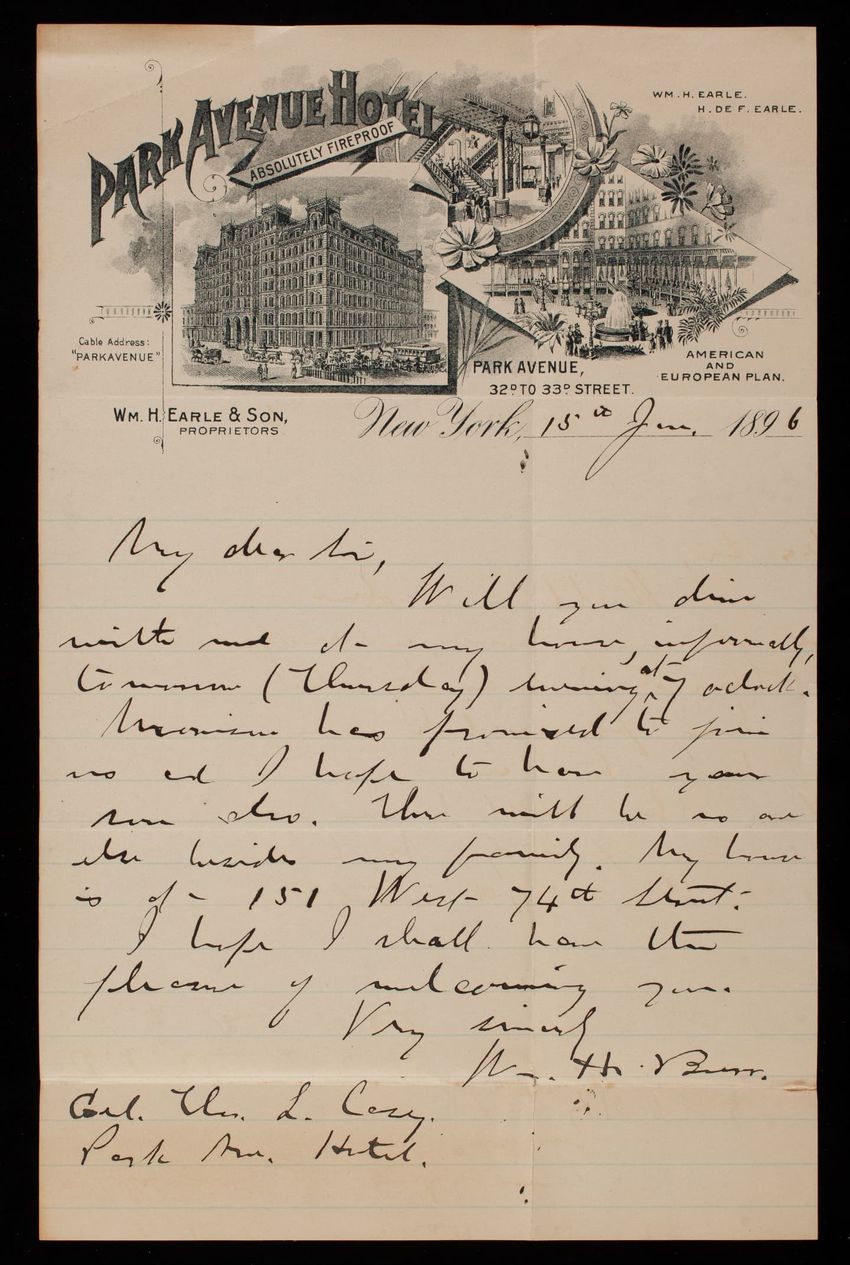 PARK AVENUE HOTEL
ABSOLUTELY FIREPROOF
WM. H. EARLE.
H. DE F. EARLE.
Cable Address:
"PARKAVENUE"
PARK AVENUE,
32D TO 33D STREET.
AMERICAN
AND
EUROPEAN PLAN.
WM. H. EARLE & SON,
PROPRIETORS
New York, 15th Jan. 1896
My dear Sir,
Will you dine
with me at my house, informally,
tomorrow (Thursday) evening at 7 o'clock.
has promised to join
us and I hope to have your
son also. There will be no one
else besides my family. My house
is at 151 West 74th Street.
I hope I shall have the
pleasure of welcoming you.
Very sincerely
Wm. H. Burr.
Gel. Thos. L. Casey.
Park Ave. Hotel.